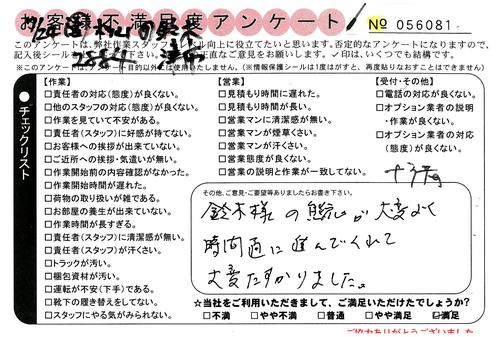 お客様不満足度アンケート
No 056081
このアンケートは、弊社作業スタッフのレベル向上に役立てたいと思います。否定的なアンケートになりますので、
※このアンケートは、アンケート目的以外には使用いたしません。(※情報保護シールは1度はがすと、再度貼りなおすことはできません)
チェックリスト
【作業】
□責任者の対応(態度)が良くない。
□他のスタッフの対応(態度)が良くない。
□作業を見ていて不安がある。
□責任者(スタッフ)に好感が持てない。
□お客様への挨拶が出来ていない。
□ご近所への挨拶・気遣いが無い。
□作業開始前の内容確認がなかった。
□作業開始時間が遅れた。
□荷物の取り扱いが雑である。
□お部屋の養生が出来ていない。
□作業時間が長すぎる。
□責任者(スタッフ)に清潔感が無い。
□責任者(スタッフ)が汗くさい。
□トラックが汚い。
□梱包資材が汚い。
□運転が不安(下手)である。
□靴下の履き替えをしてない。
□スタッフにやる気がみられない。
【営業】
□見積もりに遅れた。
□見積もり時間が長い。
□営業マンに清潔感が無い。
□営業マンが煙草くさい。
□営業マンが汗くさい。
□営業態度が良くない。
□営業の説明と作業が一致してない。
【受付・その他】
□電話の対応が良くない。
□オプション業者の説明
・作業が良くない。
□オプション業者の対応
(態度)が良くない。
その他、ご意見・ご要望等ありましたらお書き下さい。
鈴木様の態心が大変よく
時間通に進んでくれて
大変たすかりました。
☆当社をご利用いただきまして、ご満足いただけたでしょうか?
□不満 □やや不満 □普通 □やや満足 □満足
ご協力ありがとうございました